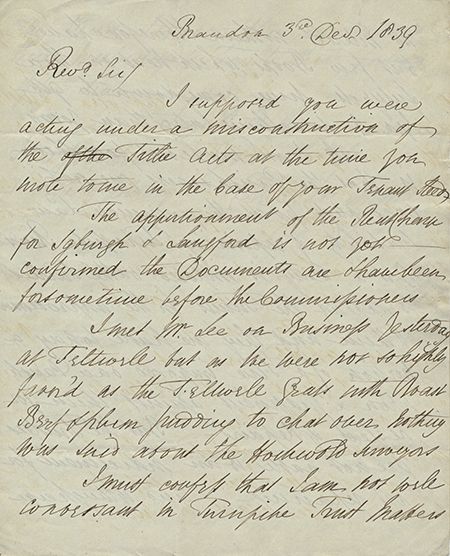 Brandon 3rd Decr 1839
Revd. Sir
I supposed you were
acting under a misconstruction of
the of the Tithe Acts at the time you
wrote to me in the Case of your Tenant
The apportionment of the Rent Charge
for Igburgh & Langford is not yet
confirmed the Documents are & have been
for some time before the Commissioners
I met Mr. Lee on Business Yesterday
at Feltwell but as we were not so highly
favor'd as the Feltwell with Roast
Beef & plum pudding to chat over nothing
was said about the Hockwold Surveyors
I must confess that I am not well
conversant in Turnpike Trust Matters